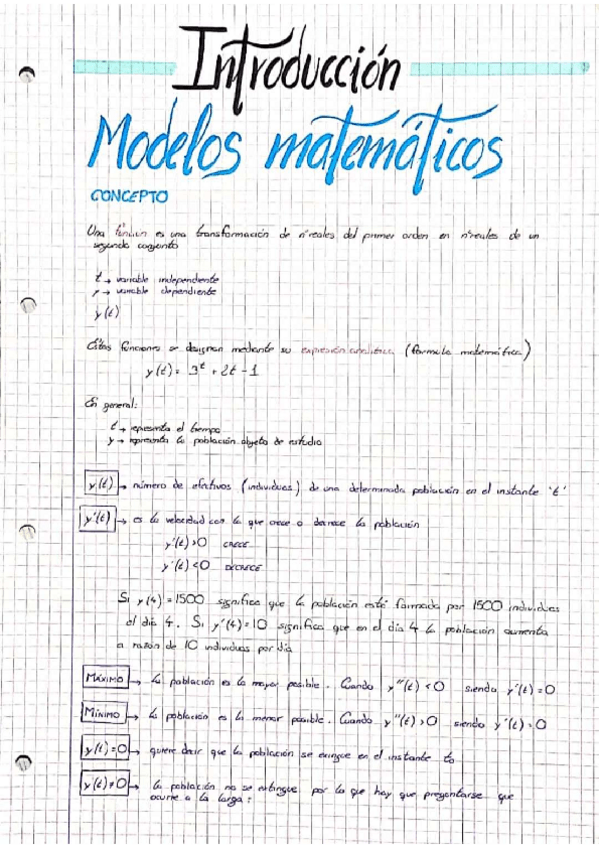 Introducción
Modelos matemáticos
CONCEPTO
Una función es una transformación de nºreales del primer orden en nºreales de un
segundo conjunto
t → variable independiente
y → variable dependiente
y(t)
Estas funciones se designan mediante su expresión analítica (formula matemática)
y(t) = 3^t + 2t - 1
En general:
t → representa el tiempo
y → representa la población objeto de estudio
y(t) → número de efectivos (individuos) de una determinada población en el instante 't'
y'(t) → es la velocidad con la que crece o decrece la población
y'(t)>0 CRECE
y'(t)<0 DECRECE
Si y(4)=1500 significa que la población está formada por 1500 individuos
el día 4. Si y'(4)=10 significa que en el día 4 la población aumenta
a razón de 10 individuos por día
MÁXIMO → la población es la mayor posible. Cuando y''(t)<0 siendo y'(t)=0
MÍNIMO → la población es la menor posible. Cuando y''(t)>0 siendo y'(t)=0
y(t)=0 → quiere decir que la población se extingue en el instante to
y(t)≠0 → la población no se extingue por lo que hay que preguntarse que
ocurre a la larga: